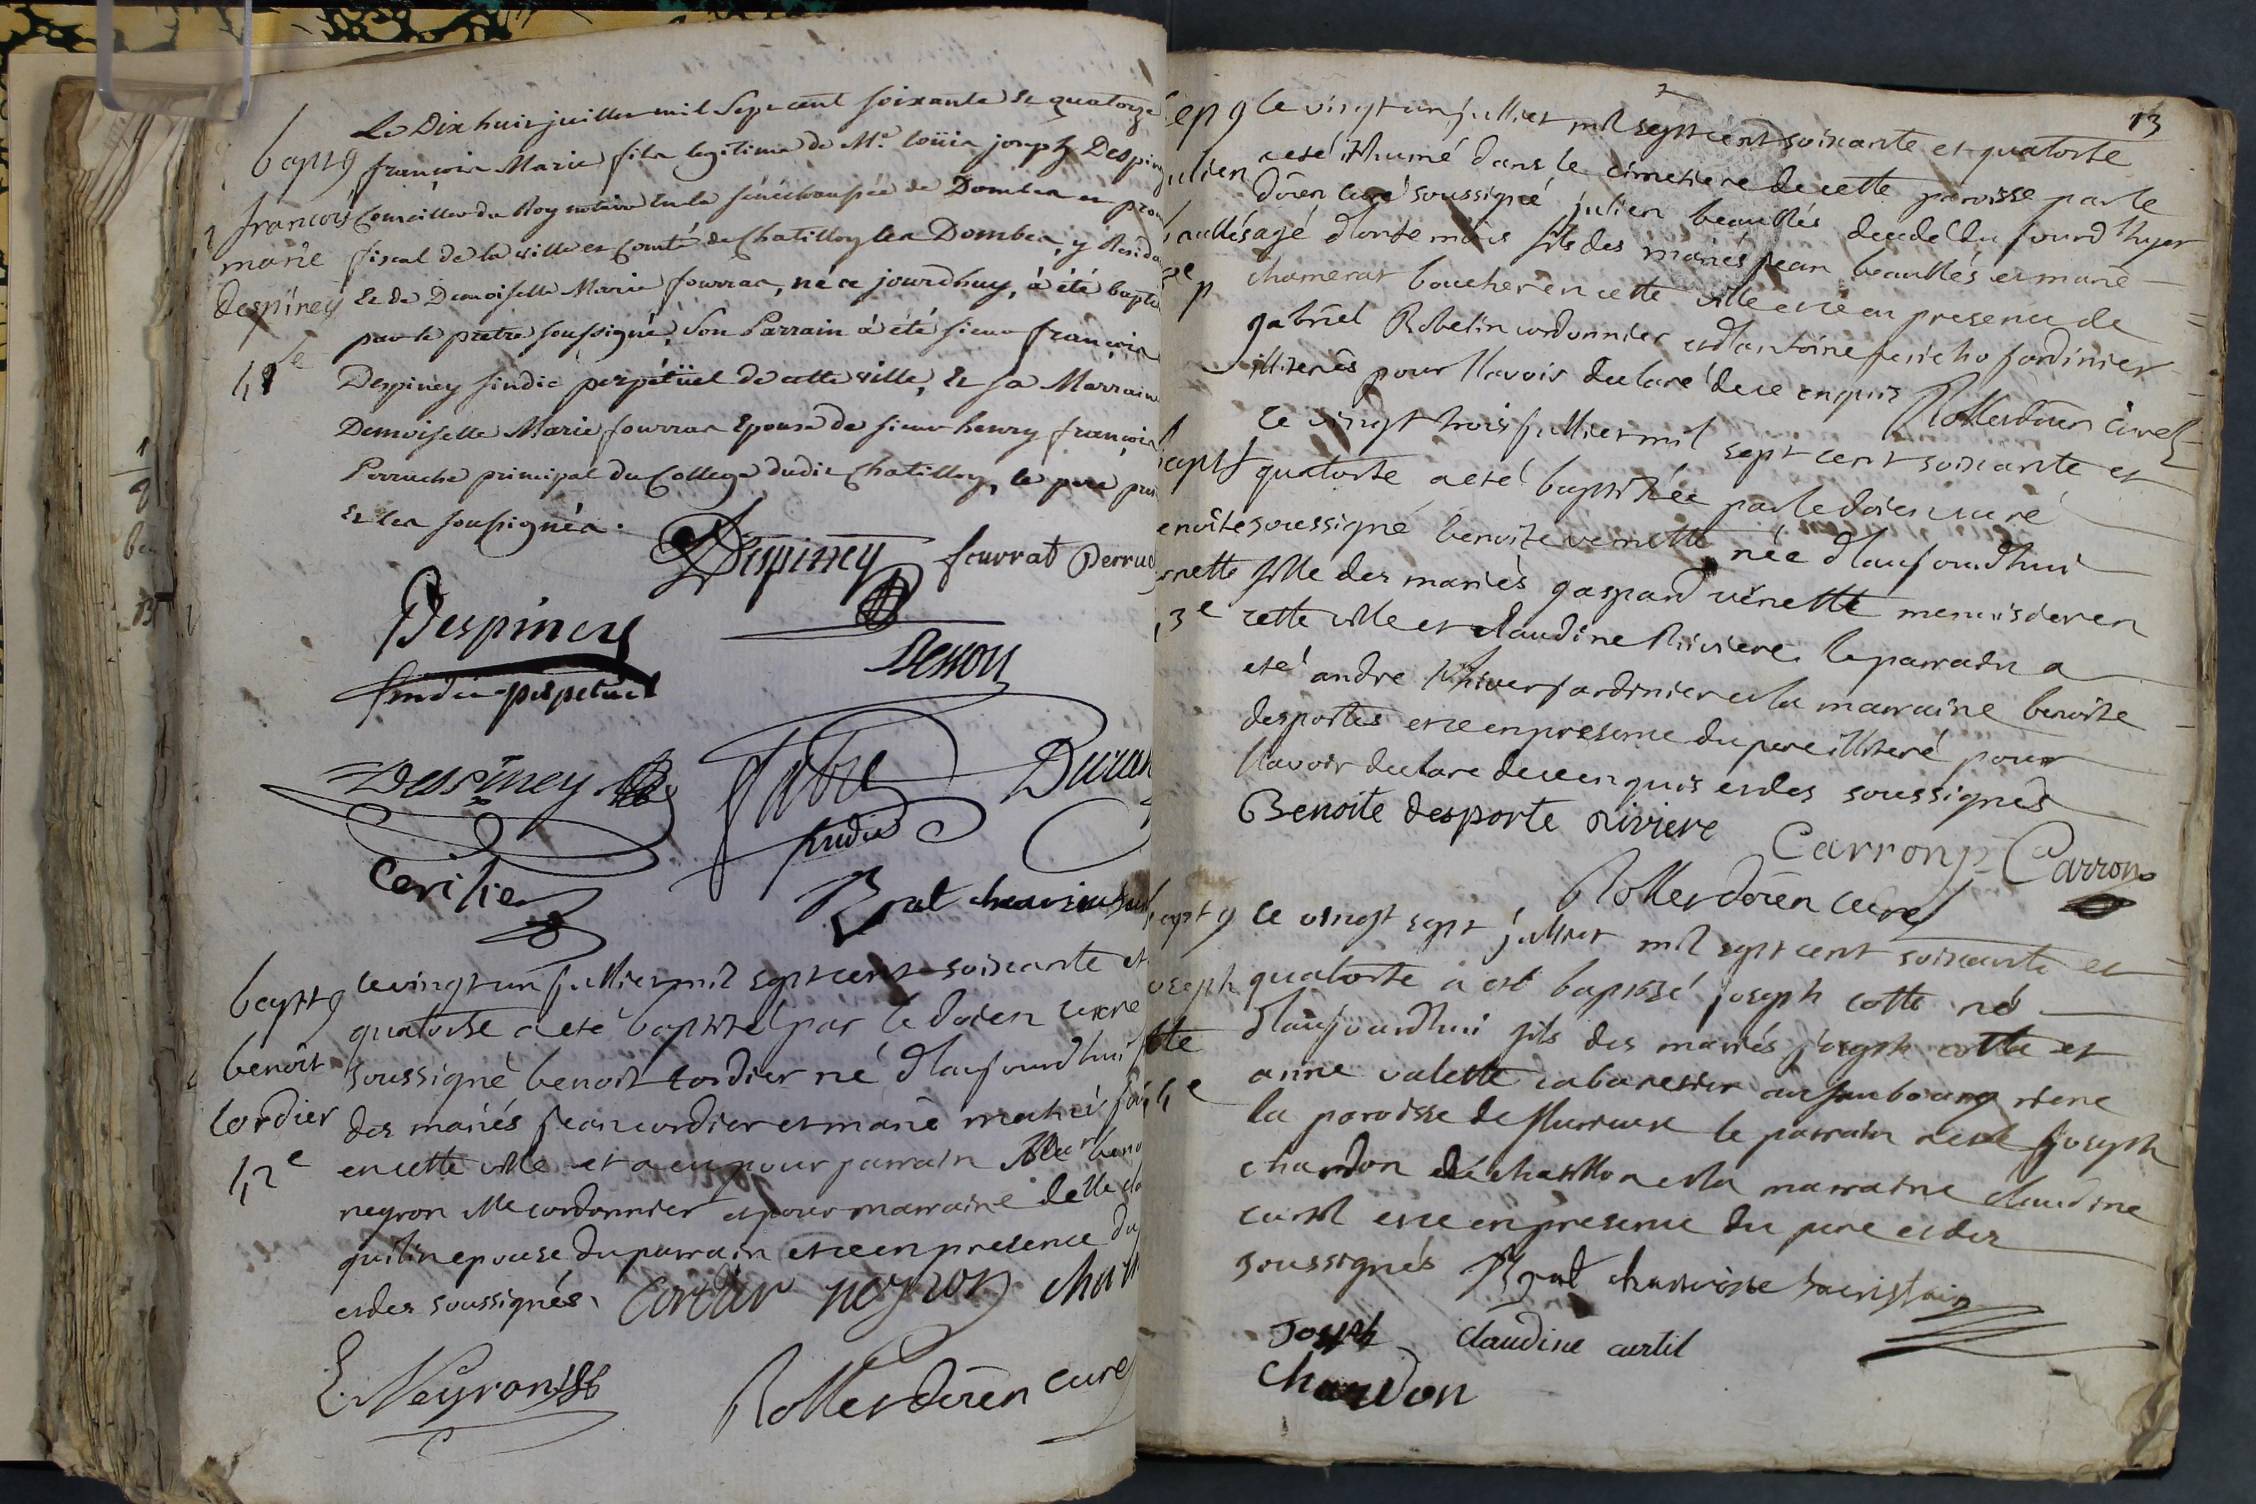 Le Dix huit juillet mil Sept cent soixante et quatorze
bapt g
françois Marie fils legitime de Me. loüis joseph Despiney
françois
marie
Despiney
Conseiller du Roy notaire En la sénéchaussée de Dombes et pro
fiscal de la ville et Comté de Chatillon les Dombes, y Resida
Et de Demoiselle Marie fourrat, né ce jourdhuy, à été bapti
par le prêtre soussigné, Son Parrain à été sieur françois
Despiney sindic perpétüel de cette ville, Et sa Marraine
Demoiselle Marie fourrat Epouse de sieur henry françois
Perruche principal du College dudit Chatillon, le pere pre
Et les soussignés.
Despiney fourrat Perruc
Despiney
sindic perpetuel
Despiney
fabre
sindic
Duran
Brat chanoine
bapt g
benoit
cordier
42e
le vingt un juillier mil sept cent soixante et
quatorse a eté baptisé par le doien curé
soussigné benoit cordier né d'laujourdhui
des mariés jean cordier et marie
en cette ville et a eu pour parrain
negron Me cordonnier et pour marraine delle
epouse du parrain et ce en presence du
et des soussignés. Cordier neyron
E. Neyron
Rollet doïen curé
13
le vingt un juillier mil sept cent soixante et quatorse
a eté inhumé dans le cimetiere de cette paroisse par le
doïen curé soussigné julien beaullés decedé du jourd'hyer
agé d'onse mois fils des mariés jean beaullés et marie
chamerat boucher en cette ville et ce en presence de
gabriel Robelin cordonnier et d'antoine jericho jardinier
illiterés pour l'avoir declaré de ce enquis
Rollet doïen curé
le vingt trois juillier mil sept cent soixante et
quatorse a eté baptisée par le doien curé
soussigné benoite vernette née d'laujourdhui
fille des mariés gaspard vernette menuisier en
cette ville et claudine Riviere le parrain a
eté andré jardinier et la marraine benoite
desportes et ce en presence du pere illiteré pour
l'avoir declaré de ce enquis et des soussignés
Benoite desporte riviere Carron p. Carron
Rollet doïen curé
le vingt sept juillet mil sept cent soixante et
quatorse a eté baptisé joseph cotte né
d'laujourdhui fils des mariés joseph cotte et
anne valette cabaretier au faubourg riere
la paroisse de fleurieux le parrain a eté joseph
chardon de chatillon et la marraine claudine
curtil et ce en presence du pere et des
soussignés Brat chanoine sacristain
Joseph claudine curtil
chardon